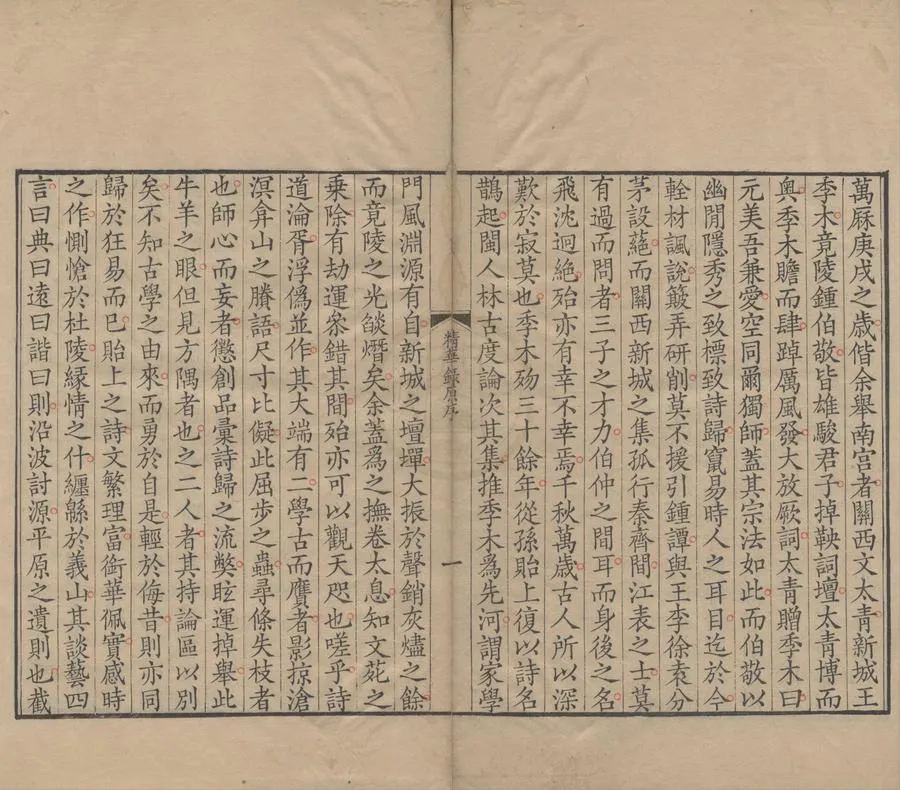 萬厤庚戌之歳偕余舉南宫者關西文太青新城王
季木竟陵鍾伯敬皆雄駿君子掉鞅詞壇太青博而
奥季木贍而肆踔厲風發大放厥詞太青贈季木曰
元美吾兼愛空同爾獨師蓋其宗法如此而伯敬以
幽閒隱秀之致標致詩歸竄易時人之耳目迄於今
輇材諷說簸弄研削莫不援引鍾譚與王李徐袁分
茅設蕝而關西新城之集孤行秦齊間江表之士莫
有過而問者三子之才力伯仲之間耳而身後之名
飛沈迥絶殆亦有幸不幸焉千秋萬歳古人所以深
歎於寂莫也季木歿三十餘年從孫貽上復以詩名
鵲起閩人林古度論次其集推季木爲先河謂家學
精華錄原序
一
門風淵源有自新城之壇墠大振於聲銷灰燼之餘
而竟陵之光燄熸矣余蓋爲之撫卷太息知文苑之
乗除有劫運叅錯其間殆亦可以觀天咫也嗟乎詩
道淪胥浮僞並作其大端有二學古而贗者影掠滄
溟弇山之賸語尺寸比儗此屈步之蟲尋條失枝者
也師心而妄者懲創品彚詩歸之流獘眩運掉舉此
牛羊之眼但見方隅者也之二人者其持論區以別
矣不知古學之由來而勇於自是輕於侮昔則亦同
歸於狂易而已貽上之詩文繁理富銜華佩實感時
之作惻愴於杜陵縁情之什纒緜於義山其談藝四
言曰典曰遠曰諧曰則沿波討源平原之遺則也截